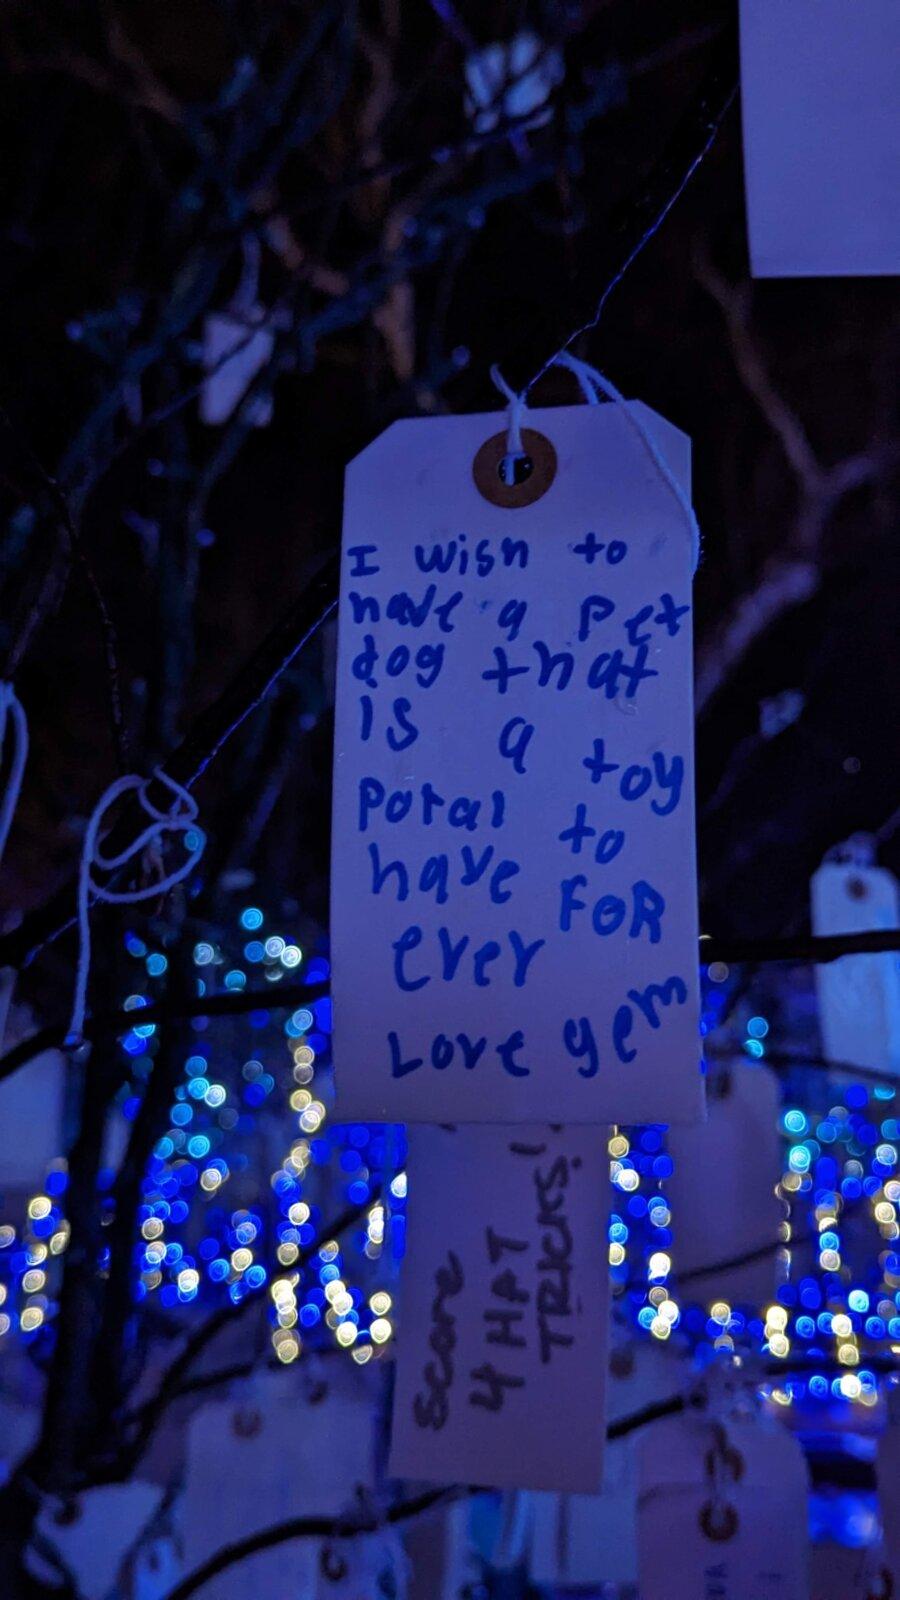 I wish to
have a pet
dog that
is a toy
Poral to
have FOR
ever
Love gem
Score
4 HAT
TRICKS!